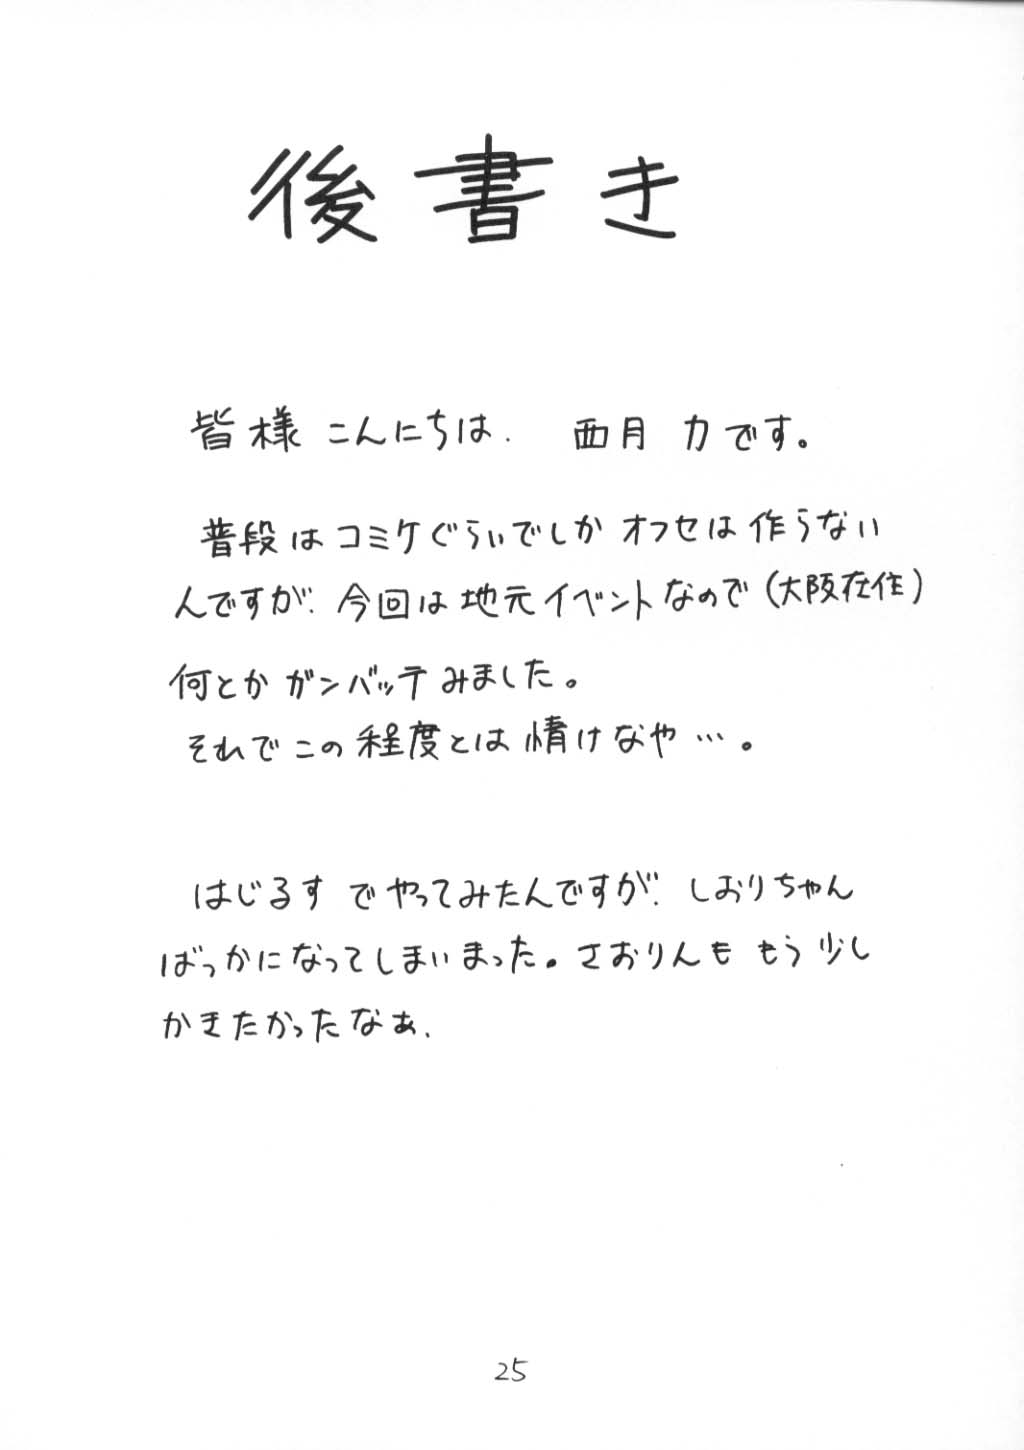 後書き
皆様 こんにちは. 西月 力です。
普段はコミケぐらいでしか オフセは作らない
んですが. 今回は地元イベントなので(大阪在住)
何とか ガンバッテみました。
それで この程度とは情けなや…。
はじるす でやってみたんですが. しおりちゃん
ばっかになってしまいまった。さおりんも もう少し
かきたかったなぁ.
25